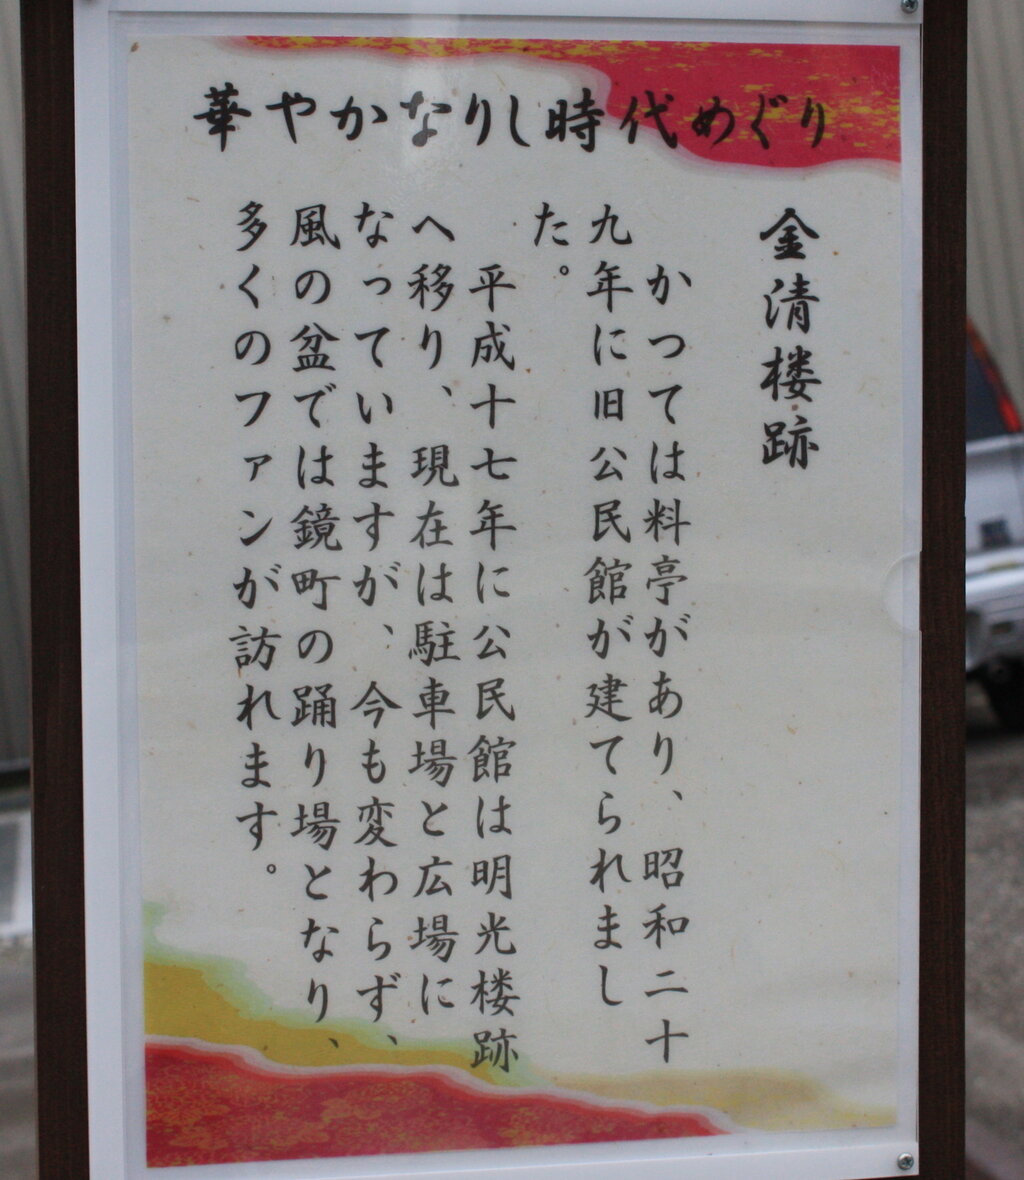 華やかなりし時代めぐり
金清楼跡
かつては料亭があり、昭和二十
九年に旧公民館が建てられまし
た。
平成十七年に公民館は明光楼跡
へ移り、現在は駐車場と広場に
なっていますが、今も変わらず、
風の盆では鏡町の踊り場となり、
多くのファンが訪れます。